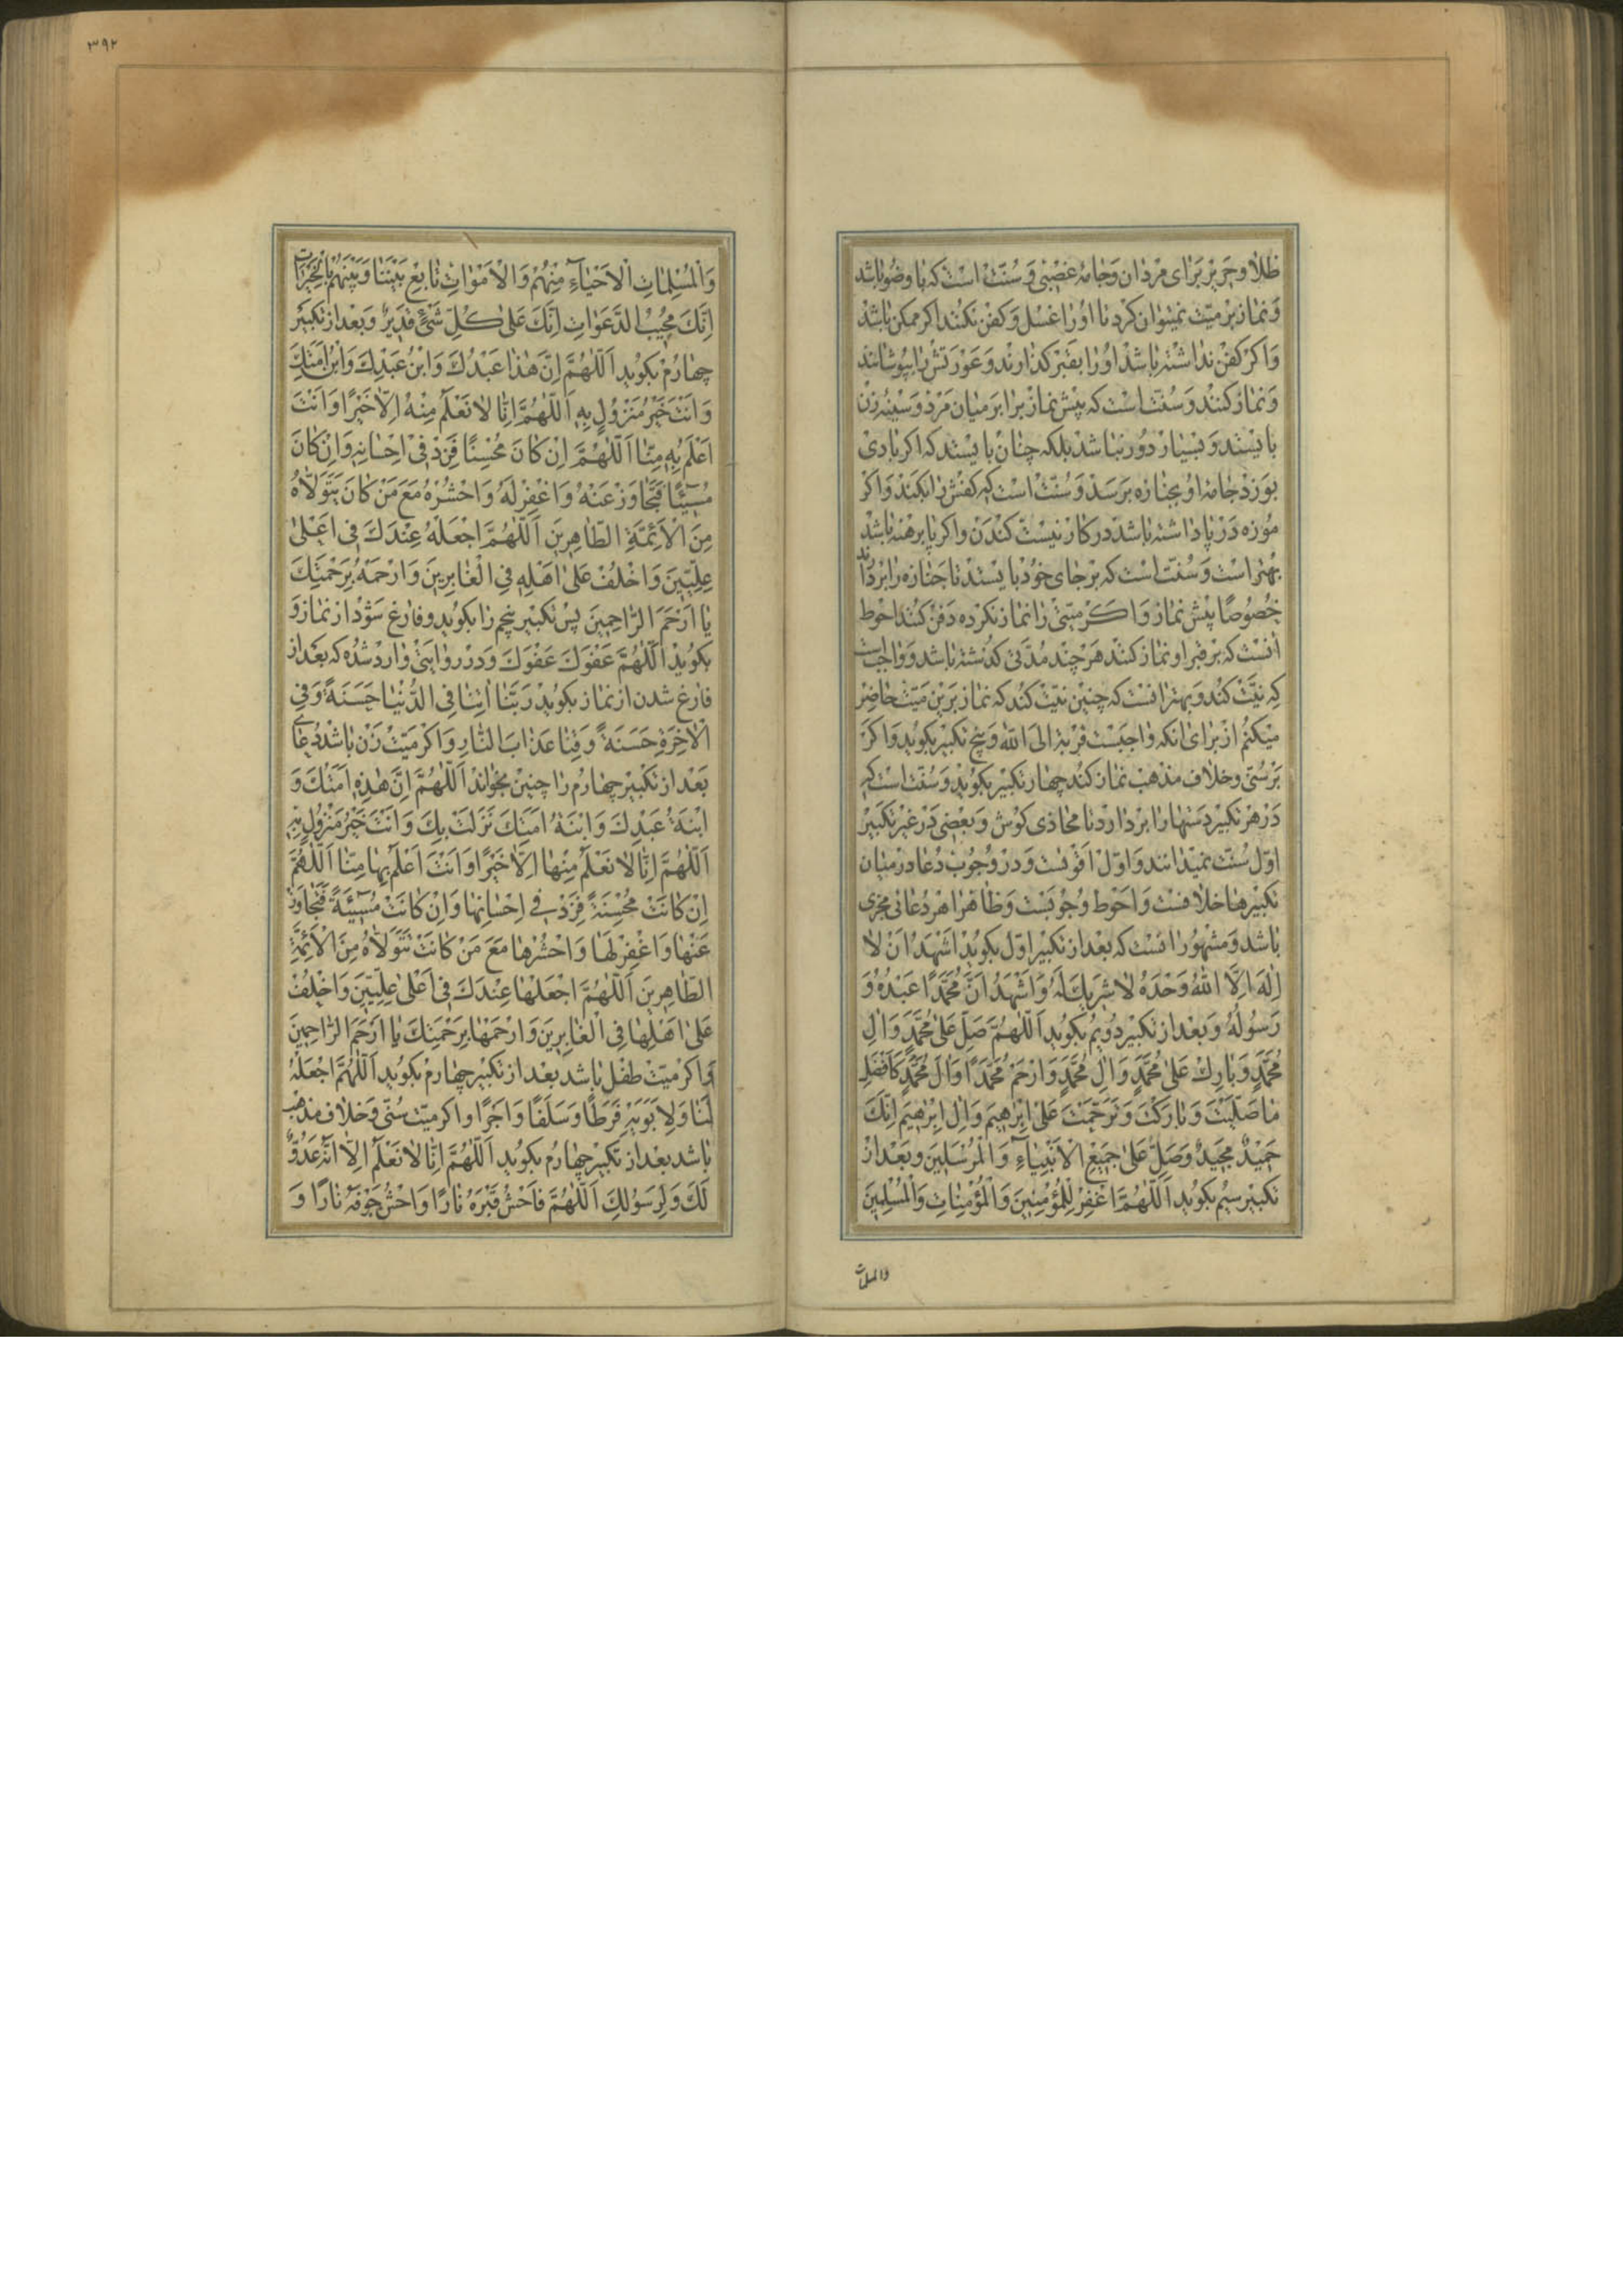 طلا و حریر برای مردان و جامهٔ غصبی و سُنّت است که با وضُو باشد
و نماز بر میّت نمیتوان کرد تا او را غسل و کفن نکنند اکر ممکن باشد
و اکر کفن نداشته باشد او را بقبر کذارند و عورتش را بپوشانند
و نماز کنند و سُنّت است که پیش نماز برابر میان مرد و سینهٔ زن
بایستد و بسیار دور نباشد بلکه چنان بایستد که اکر بادی
بوزد جامهٔ او بجنازه برسد و سُنّت است که کفش را بکند و اکر
موزه در پا داشته باشد در کار نیست کندن و اکر پا برهنه باشد
بهتر است و سُنّت است که بر جای خود بایستد تا جنازه را بردارند
خُصُوصًا پیش نماز و اکر میّتی را نماز نکرده دفن کنند احوط
آنست که بر قبر او نماز کنند هر چند مدّتی کذشته باشد و واجبست
که نیّت کند و بهتر انست که چنین نیّت کند که نماز برین میّت حاضر
میکنم از برای انکه واجبست قربة الی اللّه و پنج تکبیر بکوید و اکر
بر سُنّی و خلاف مذهب نماز کند چهار تکبیر بکوید و سُنّت است که
در هر تکبیر دستها را بردارد تا محاذی کوش و بعضی در غیر تکبیر
اوّل سُنّت نمیدانند و اوّل اقوٰیست و در وجُوب دُعا در میان
تکبیرها خلافست و احوط وجوبست و ظاهرا هر دُعائی مجزی
باشد و مشهور انست که بعد از تکبیر اوّل بکوید اَشْهَدُ اَنْ لا
اِلٰهَ اِلَّا اللّهُ وَحْدَهُ لا شَرِيكَ لَهُ وَاَشْهَدُ اَنَّ مُحَمَّدًا عَبْدُهُ وَ
رَسُولُهُ و بعد از تکبیر دویم بکوید اَللّهُمَّ صَلِّ عَلىٰ مُحَمَّدٍ وَاٰلِ
مُحَمَّدٍ وَبارِكْ عَلىٰ مُحَمَّدٍ وَاٰلِ مُحَمَّدٍ وَارْحَمْ مُحَمَّدًا وَاٰلَ مُحَمَّدٍ كَاَفْضَلِ
ما صَلَّيْتَ وَبارَكْتَ وَتَرَحَّمْتَ عَلىٰ اِبْرٰهِيمَ وَاٰلِ اِبْرٰهِيمَ اِنَّكَ
حَمِيدٌ مَجِيدٌ وَصَلِّ عَلىٰ جَمِيعِ الْاَنْبِياءِ وَالْمُرْسَلِينَ و بعد از
تکبیر سیم بکوید اَللّهُمَّ اغْفِرْ لِلْمُؤْمِنِينَ وَالْمُؤْمِناتِ وَالْمُسْلِمِينَ
والمسلمات
٣٩٢
وَالْمُسْلِماتِ الْاَحْياءِ مِنْهُمْ وَالْاَمْواتِ تابِعْ بَيْنَنا وَبَيْنَهُمْ بِالْخَيْراتِ
اِنَّكَ مُجِيبُ الدَّعَواتِ اِنَّكَ عَلىٰ كُلِّ شَىْءٍ قَدِيرٌ و بعد از تکبیر
چهارم بکوید اَللّهُمَّ اِنَّ هٰذا عَبْدُكَ وَابْنُ عَبْدِكَ وَابْنُ اَمَتِكَ
وَاَنْتَ خَيْرُ مَنْزُولٍ بِهِ اَللّهُمَّ اِنّا لا نَعْلَمُ مِنْهُ اِلّا خَيْرًا وَاَنْتَ
اَعْلَمُ بِهِ مِنّا اَللّهُمَّ اِنْ كانَ مُحْسِنًا فَزِدْ فِى اِحْسانِهِ وَاِنْ كانَ
مُسِيئًا فَتَجاوَزْ عَنْهُ وَاغْفِرْ لَهُ وَاحْشُرْهُ مَعَ مَنْ كانَ يَتَوَلّاهُ
مِنَ الْاَئِمَّةِ الطّاهِرِينَ اَللّهُمَّ اجْعَلْهُ عِنْدَكَ فِى اَعْلىٰ
عِلِّيِّينَ وَاخْلُفْ عَلىٰ اَهْلِهِ فِى الْغابِرِينَ وَارْحَمْهُ بِرَحْمَتِكَ
يا اَرْحَمَ الرّاحِمِينَ پس تکبیر پنجم را بکوید و فارغ شود از نماز و
بکوید اَللّهُمَّ عَفْوَكَ عَفْوَكَ و در روایتی وارد شده که بعد از
فارغ شدن از نماز بکوید رَبَّنا اٰتِنا فِى الدُّنْيا حَسَنَةً وَفِى
الْاٰخِرَةِ حَسَنَةً وَقِنا عَذابَ النّارِ و اکر میّت زن باشد دُعای
بعد از تکبیر چهارم را چنین بخواند اَللّهُمَّ اِنَّ هٰذِهِ اَمَتُكَ وَ
ابْنَةُ عَبْدِكَ وَابْنَةُ اَمَتِكَ نَزَلَتْ بِكَ وَاَنْتَ خَيْرُ مَنْزُولٍ بِهِ
اَللّهُمَّ اِنّا لا نَعْلَمُ مِنْها اِلّا خَيْرًا وَاَنْتَ اَعْلَمُ بِها مِنّا اَللّهُمَّ
اِنْ كانَتْ مُحْسِنَةً فَزِدْ فِى اِحْسانِها وَاِنْ كانَتْ مُسِيئَةً فَتَجاوَزْ
عَنْها وَاغْفِرْ لَها وَاحْشُرْها مَعَ مَنْ كانَتْ تَتَوَلّاهُ مِنَ الْاَئِمَّةِ
الطّاهِرِينَ اَللّهُمَّ اجْعَلْها عِنْدَكَ فِى اَعْلىٰ عِلِّيِّينَ وَاخْلُفْ
عَلىٰ اَهْلِها فِى الْغابِرِينَ وَارْحَمْها بِرَحْمَتِكَ يا اَرْحَمَ الرّاحِمِينَ
و اکر میّت طفل باشد بعد از تکبیر چهارم بکوید اَللّهُمَّ اجْعَلْهُ
لَنا وَلِاَبَوَيْهِ فَرَطًا وَسَلَفًا وَاَجْرًا و اکر میّت سُنّی و خلاف مذهب
باشد بعد از تکبیر چهارم بکوید اَللّهُمَّ اِنّا لا نَعْلَمُ اِلّا اَنَّهُ عَدُوٌّ
لَكَ وَلِرَسُولِكَ اَللّهُمَّ فَاحْشُ قَبْرَهُ نارًا وَاحْشُ جَوْفَهُ نارًا وَ